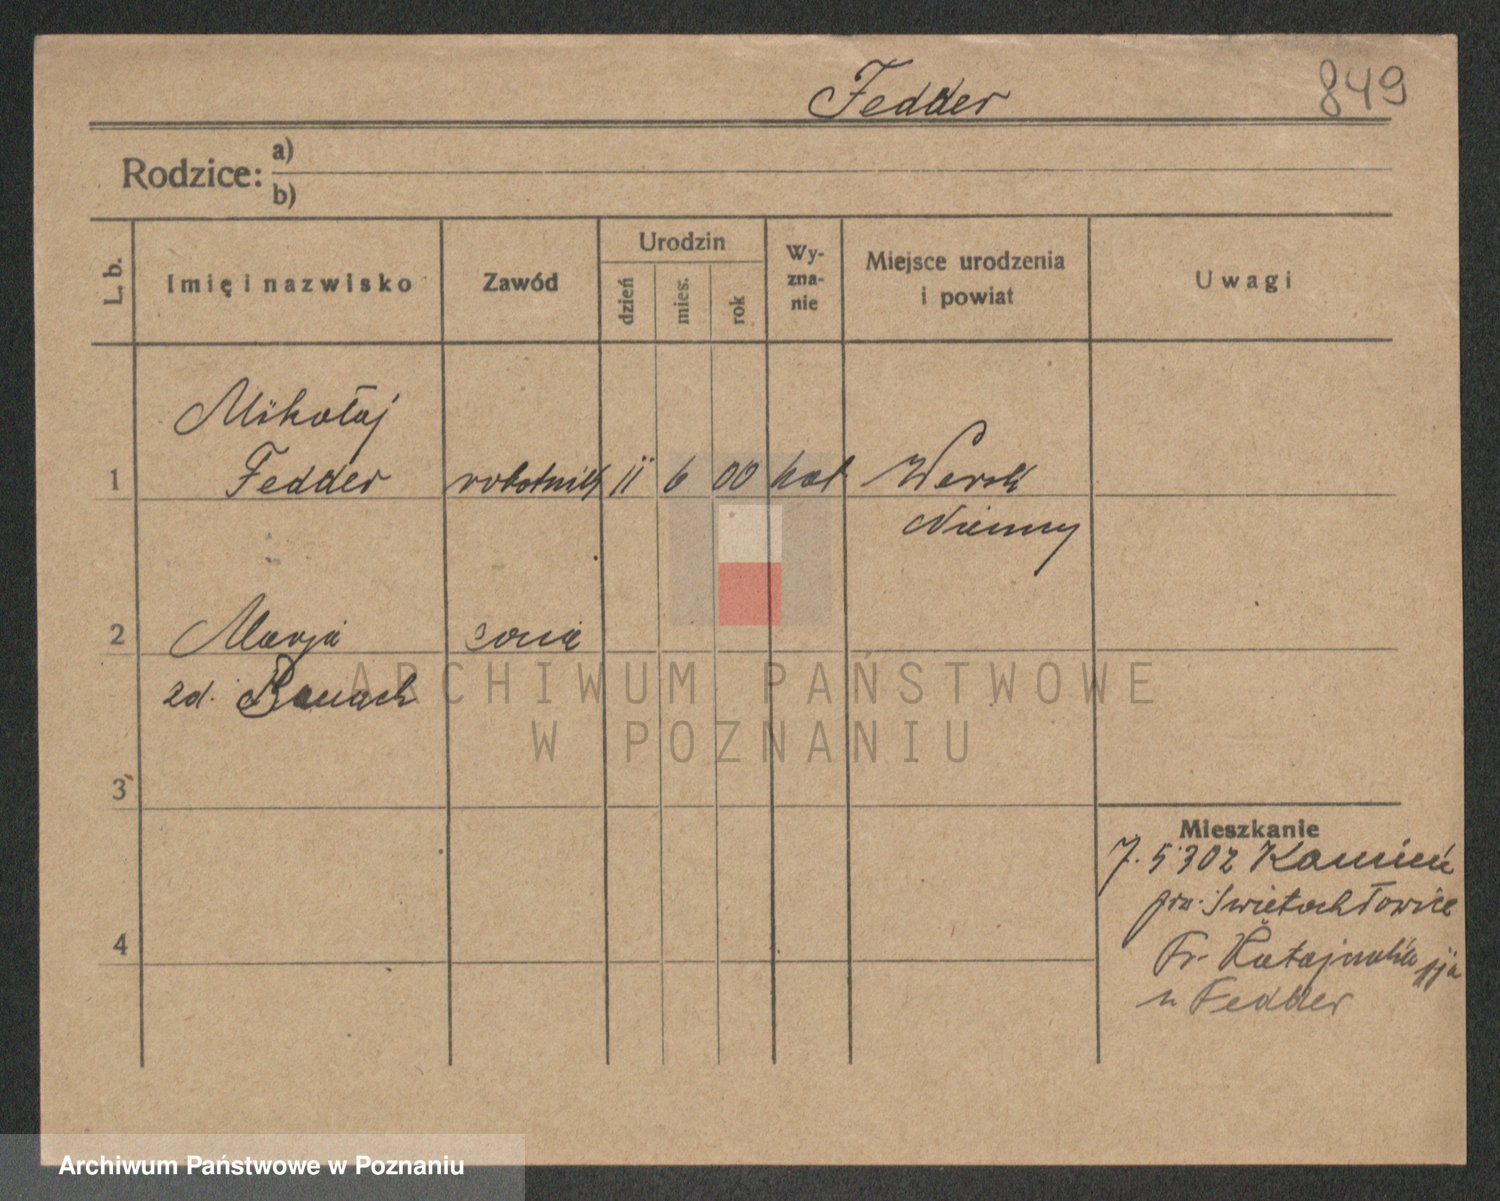 Fedder
849
Rodzice: a)
b)
L. b.
Imię i nazwisko
Zawód
Urodzin
dzień
mies.
rok
Wy-
zna-
nie
Miejsce urodzenia
i powiat
Uwagi
Mikołaj
1 Fedder robotnik 11 6 00 kat Werdt
Niemcy
2 Marja żona
zd. Banach
3
4
Mieszkanie
7. 5 302 Kamień
pow. Świętochłowice
Fr. Ratajczaka
u Fedder
ARCHIWUM PAŃSTWOWE
W POZNANIU
Archiwum Państwowe w Poznaniu